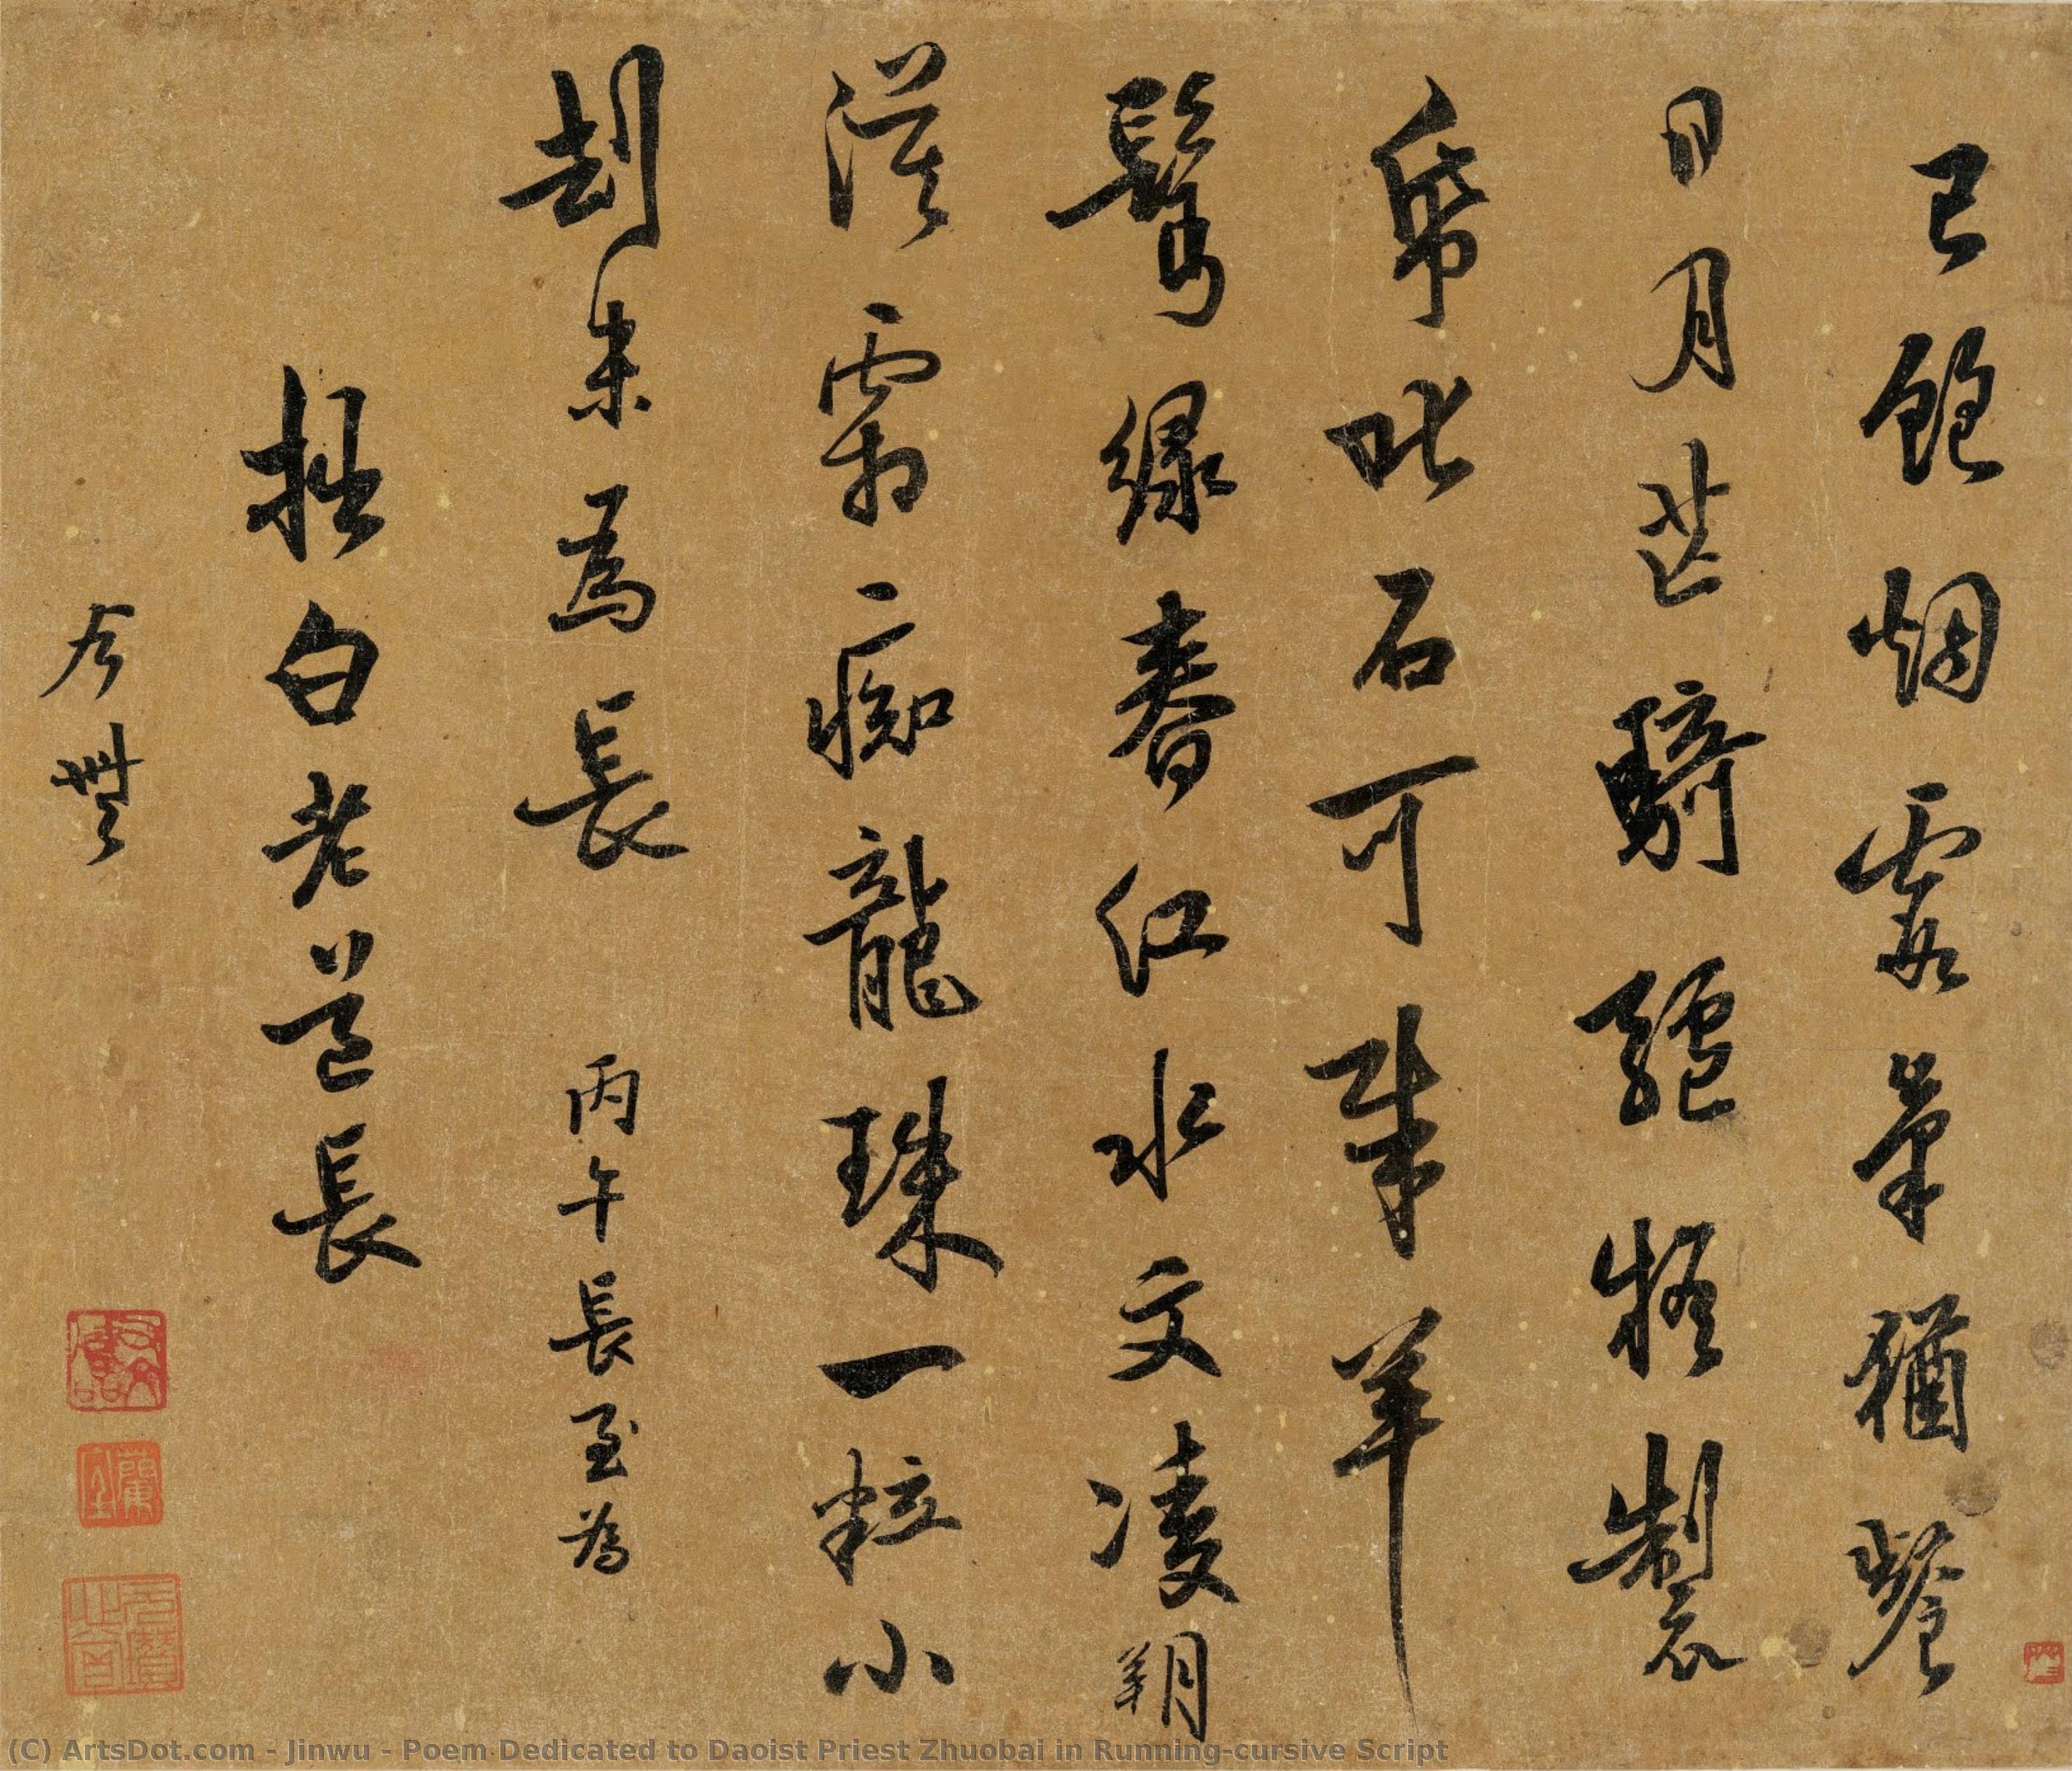 已飽烟霞猶餐
日月芒騎驢擬製
帋叱石可成羊
鬢綠春紅水文凌朔
漠霜痴龍珠一粒小
劫未為長 丙午長至為
拙白老道長
今無
(C) ArtsDot.com - Jinwu - Poem Dedicated to Daoist Priest Zhuobai in Running-cursive Script